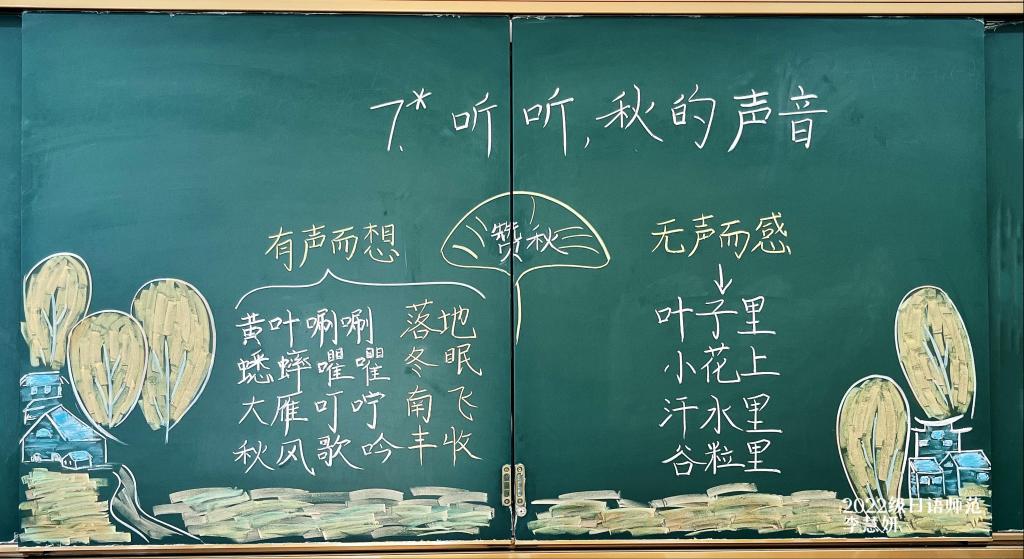 7.* 听听,秋的声音
赞秋
有声而想
黄叶唰唰 落地
蟋蟀㘗㘗 冬眠
大雁叮咛 南飞
秋风歌吟 丰收
无声而感
叶子里
小花上
汗水里
谷粒里
2022级日语师范
李慧妍